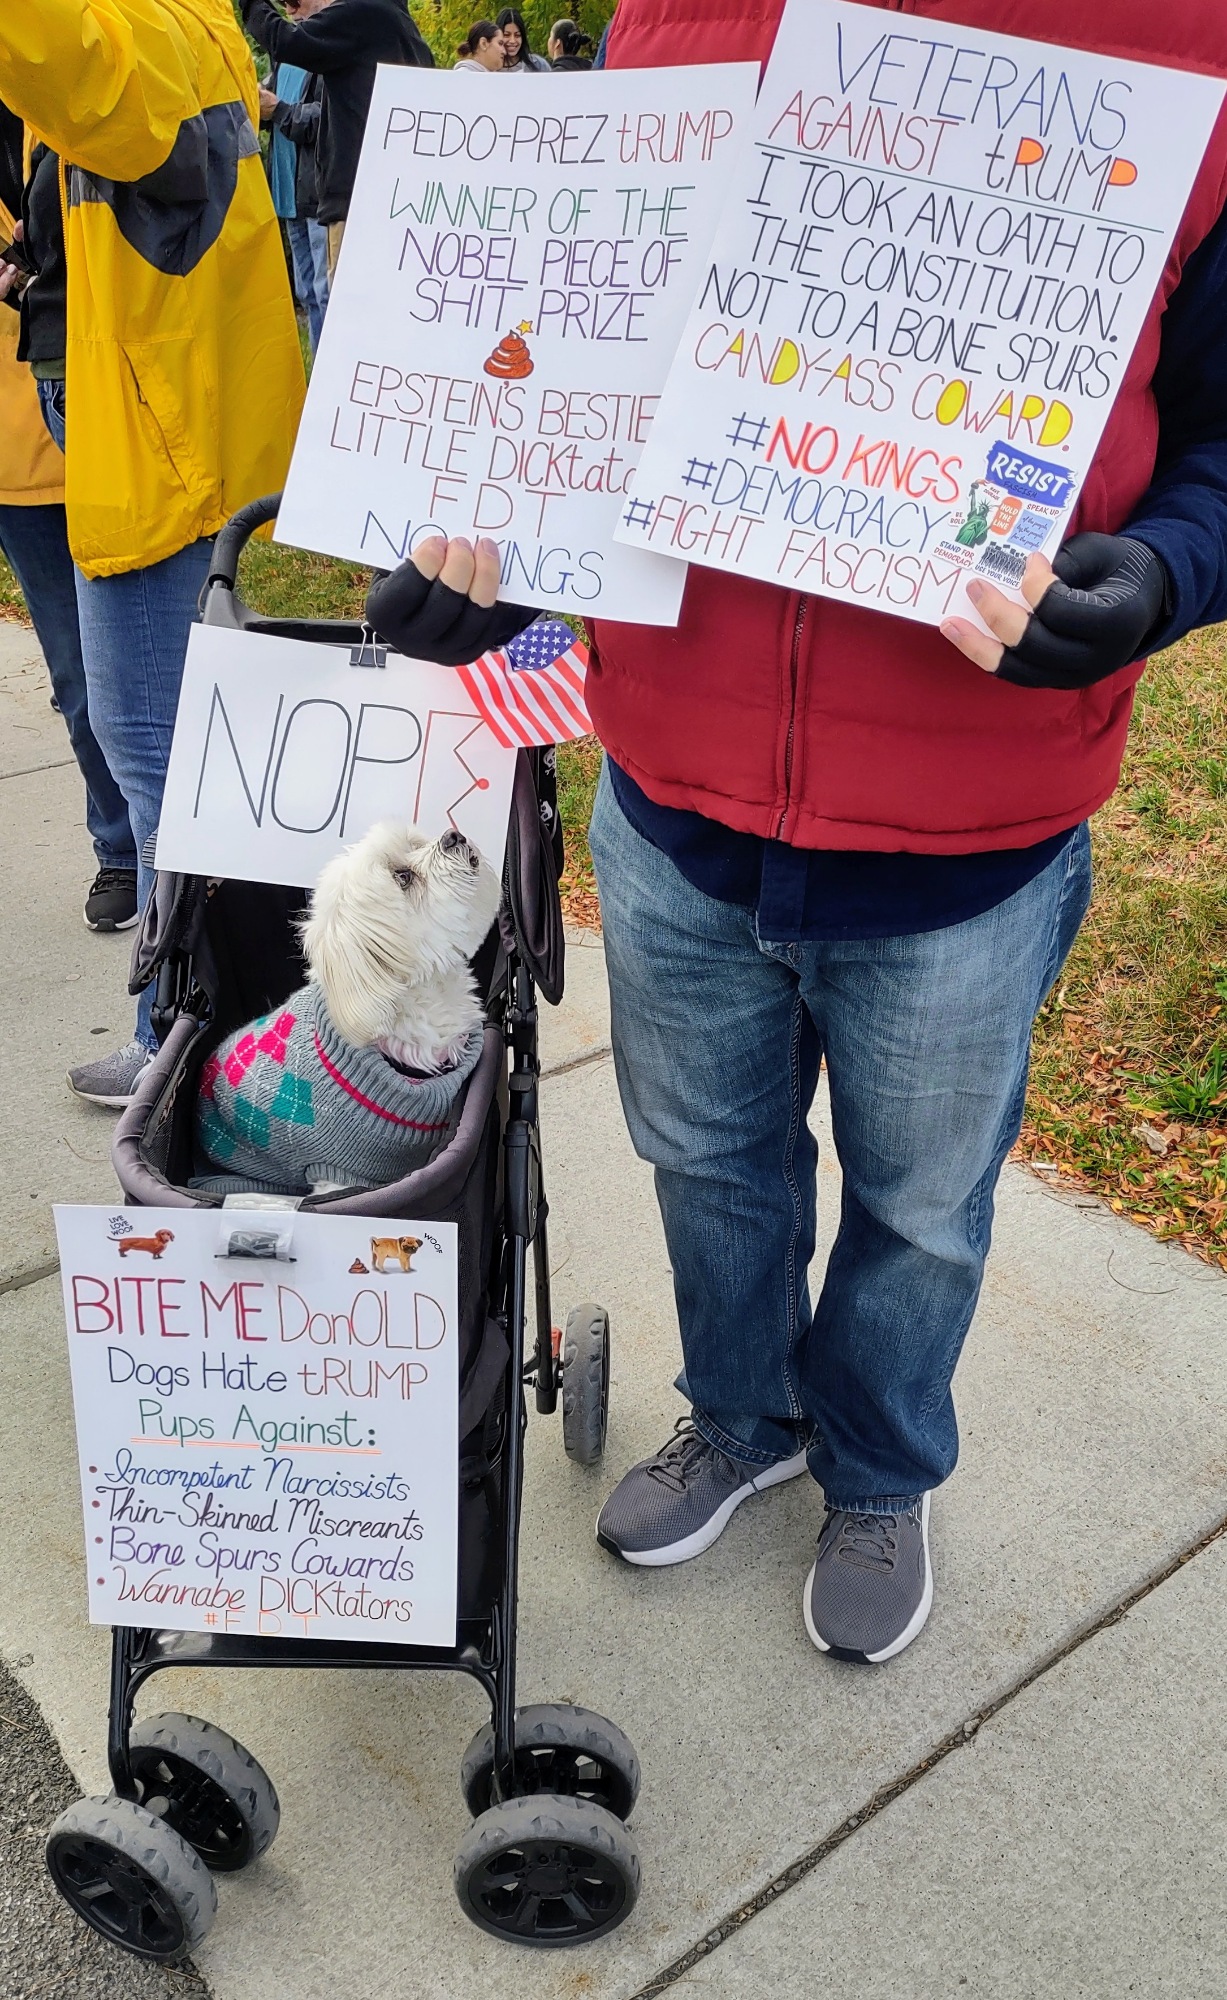 PEDO-PREZ tRUMP
WINNER OF THE
NOBEL PIECE OF
SHIT PRIZE
EPSTEIN'S BESTIE
LITTLE DICKtato
FDT
NO KINGS
VETERANS
AGAINST tRUMP
I TOOK AN OATH TO
THE CONSTITUTION.
NOT TO A BONE SPURS
CANDY-ASS COWARD.
#NO KINGS
#DEMOCRACY
#FIGHT FASCISM
RESIST
FASCISM
SPEAK UP
BE
BOLD
HOLD
THE
LINE
STAND FOR
DEMOCRACY
USE YOUR VOICE
NOPE
LIVE
LOVE
WOOF
WOOF
BITE ME DonOLD
Dogs Hate tRUMP
Pups Against:
• Incompetent Narcissists
• Thin-Skinned Miscreants
• Bone Spurs Cowards
• Wannabe DICKtators
#FDT